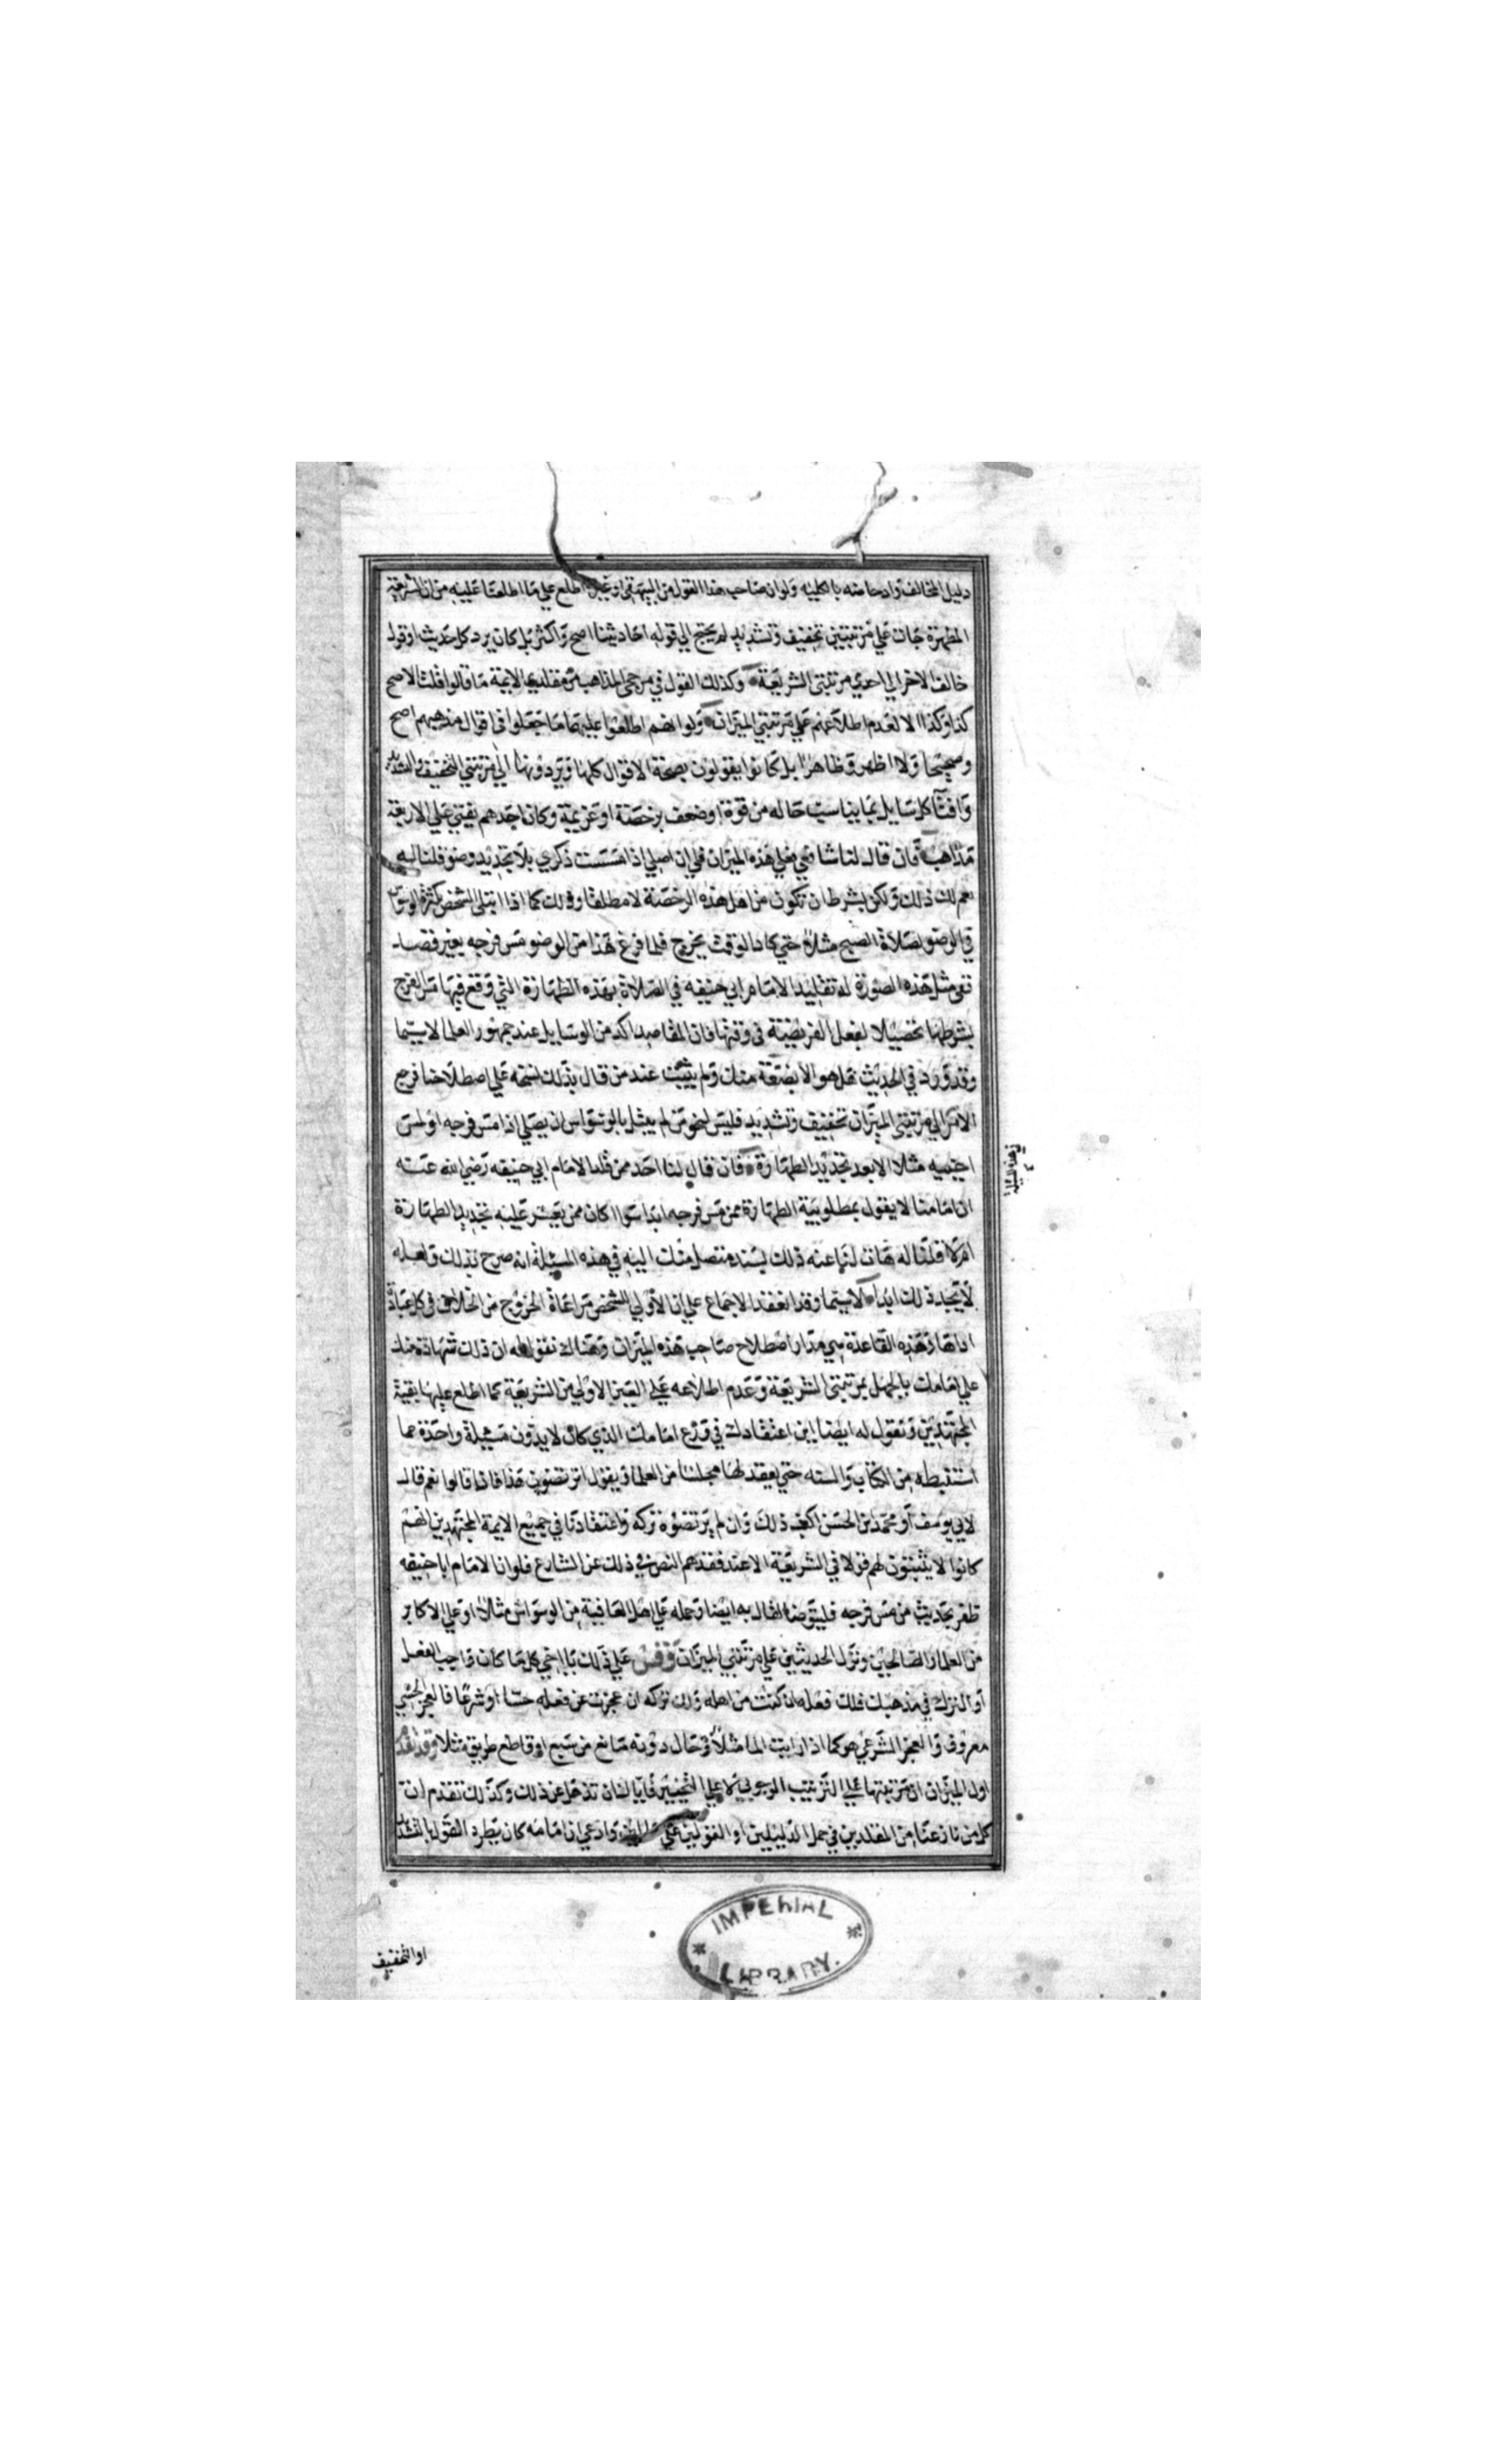 دليل المخالف وادحاضه بالكليه ولو ان صاحب هذا القول من البيهقي او غيره اطلع علي ما اطلعنا عليه من ان الشريعة
المطهرة جات علي مرتبتين تخفيف وتشديد لم يحتج الي قوله احاديثنا اصح واكثر بل كان يرد كل حديث او قول
خالف الاخر الي احدي مرتبتي الشريعة وكذلك القول في مرجحي المذاهب من مقلدي الايمة ما قالوا قلت الاصح
كذا وكذا الا لعدم اطلاعهم علي مرتبتي الميزان ولو انهم اطلعوا عليهما ما جعلوا في اقوال مذهبهم اصح
وصحيحا ولا اظهر وظاهرا بل كانوا يقولون بصحة الاقوال كلها ويردونها الي مرتبتي التخفيف والتشديد
وافتا كل سايل بما يناسب حاله من قوة او ضعف برخصة او عزيمة وكان احدهم يفتي علي الاربعة
مذاهب فان قال لنا شافعي فعلي هذه الميزان فلي ان اصلي اذا مسست ذكري بلا تجديد وضو قلنا له
نعم لك ذلك ولكن بشرط ان تكون من اهل هذه الرخصة لا مطلقا وذلك كما اذا ابتلي الشخص بكثرة الوسواس
في الوضو لصلاة الصبح مثلا حتي كاد الوقت يخرج فلما فرغ هذا من الوضو مس فرجه بغير قصد
ففي مثل هذه الصورة له تقليد الامام ابي حنيفه في الصلاة بهذه الطهارة التي وقع فيها مس الفرج
بشرطها تحصيلا لفعل الفريضة في وقتها فان المقاصد اكد من الوسايل عند جمهور العلما لا سيما
وقد ورد في الحديث هل هو الا بضعة منك ولم يثبت عند من قال بذلك نسخه علي اصطلاحنا فرجع
الامر الي مرتبتي الميزان تخفيف وتشديد فليس لنحو من لم يبتل بالوسواس ان يصلي اذا مس فرجه او لمس
اجنبيه مثلا الا بعد تجديد الطهارة فان قال لنا احد ممن قلد الامام ابي حنيفه رضي الله عنه
ان امامنا لا يقول بمطلوبية الطهارة ممن مس فرجه ابدا سوا كان ممن يعسر عليه تجديد الطهارة
ام لا قلنا له هات لنا عنه ذلك بسند متصل منك اليه في هذه المسئلة انه صرح بذلك ولعله
لا يجد ذلك ابدا لا سيما وقد انعقد الاجماع علي ان الاولي للشخص مراعاة الخروج من الخلاف في كل عبادة
اداها وهذه القاعدة هي مدار اصطلاح صاحب هذه الميزان وهناك نقول له ان ذلك شهادة منك
علي امامك بالجهل بمرتبتي الشريعة وعدم اطلاعه علي العين الاولي من الشريعة كما اطلع عليها بقية
المجتهدين ونقول له ايضا اين اعتقادك في ورع امامك الذي كان لا يدون مسئلة واحدة مما
استنبطه من الكتاب والسنه حتي يعقد لها مجلسا من العلما ويقول اترتضون هذا فاذا قالوا نعم قال
لابي يوسف او محمد بن الحسن اكتب ذلك وان لم يرتضوه تركه واعتقادنا في جميع الايمة المجتهدين انهم
كانوا لا يثبتون لهم قولا في الشريعة الا عند فقدهم النص في ذلك عن الشارع فلو ان الامام ابا حنيفه
ظفر بحديث من مس فرجه فليتوضا لقال به ايضا وحمله علي اهل العافية من الوسواس مثلا او علي الاكابر
من العلما والصالحين ونزل الحديثين علي مرتبتي الميزان وقس علي ذلك يا اخي كل ما كان واجب الفعل
او الترك في مذهبك فلك فعله ان كنت من اهله ولك تركه ان عجزت عن فعله حسا او شرعا فالعجز الحسي
معروف والعجز الشرعي هو كما اذا رايت الما مثلا وحال دونه مانع من سبع او قاطع طريق مثلا وقد تقدم
اول الميزان ان مرتبتيها علي الترتيب الوجوبي لا علي التخيير فاياك ان تذهل عن ذلك وكذلك تقدم ان
كل من نازعنا من المقلدين في حمل الدليلين او القولين علي حالين وادعي ان امامه كان يطرد القول بالتشديد
او التخفيف
IMPERIAL
LIBRARY.